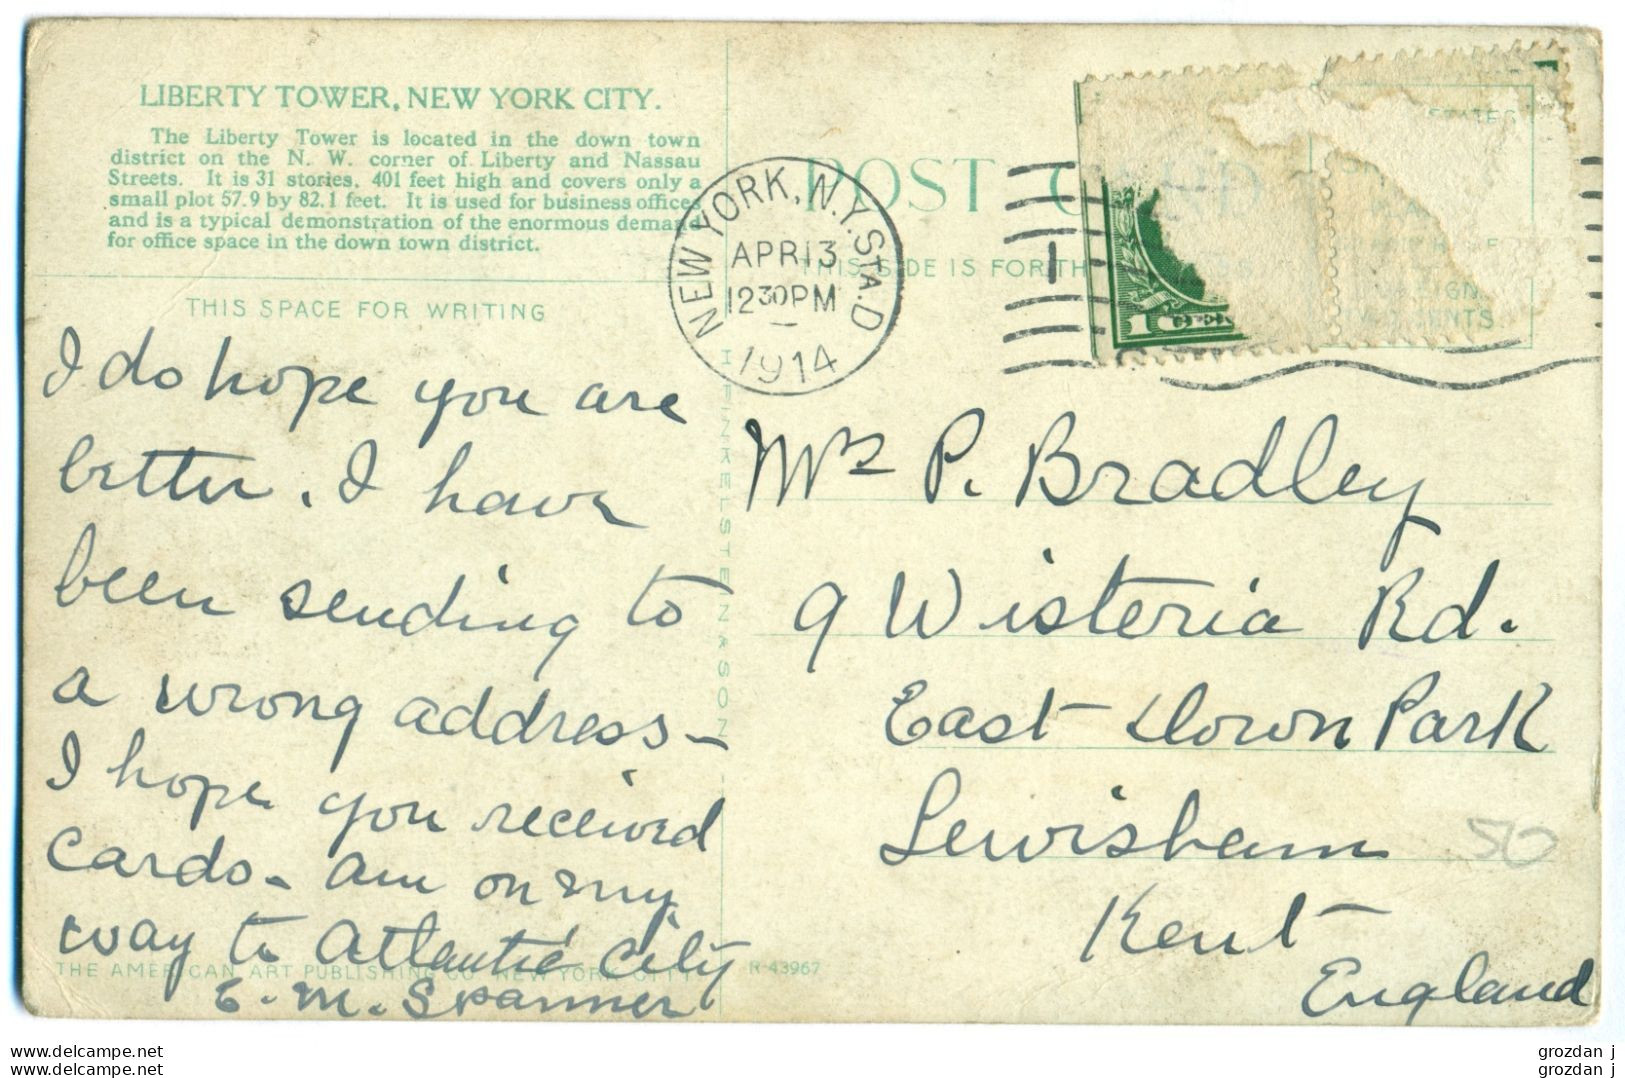 LIBERTY TOWER, NEW YORK CITY.
The Liberty Tower is located in the down town
district on the N. W. corner of Liberty and Nassau
Streets. It is 31 stories, 401 feet high and covers only a
small plot 57.9 by 82.1 feet. It is used for business offices
and is a typical demonstration of the enormous demand
for office space in the down town district.
THIS SPACE FOR WRITING
I do hope you are
better. I have
been sending to
a wrong address –
I hope you received
cards – am on my
way to Atlantic City
E. M. Spanner
THE AMERICAN ART PUBLISHING CO. NEW YORK CITY
R-43967
H. FINKELSTEIN & SON
POST CARD
THIS SIDE IS FOR TH
NEW YORK, N.Y. STA. D
APR 13
12 30 PM
1914
1
TWO CENTS
Mrs P. Bradley
9 Wisteria Rd.
East Down Park
Lewisham
Kent
England
50
grozdan j
grozdan j